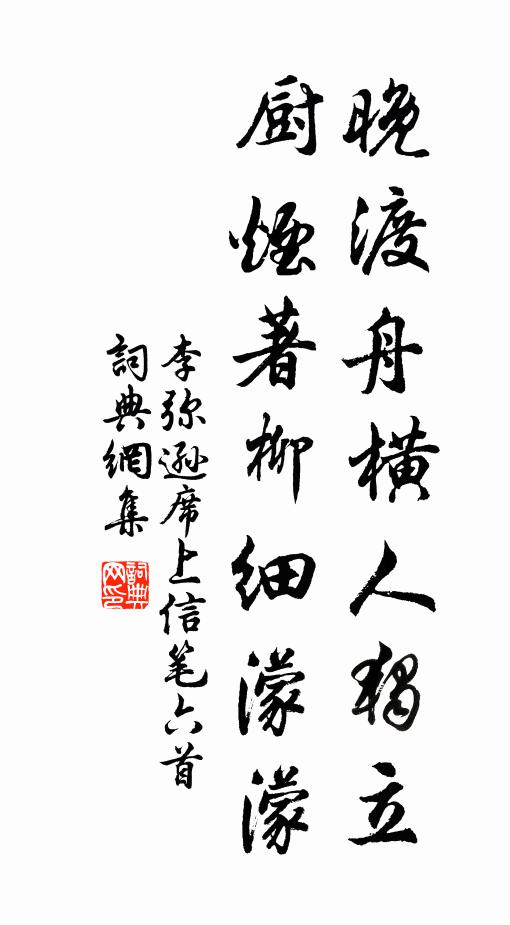 晚渡舟橫人獨立
厨煙著柳細濛濛
李弥遜席上信笔六首
詞典網集
詞典网印